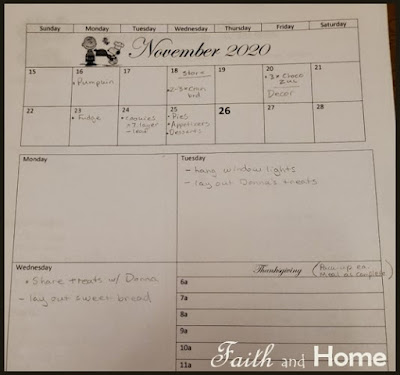 November 2020
Sunday Monday Tuesday Wednesday Thursday Friday Saturday
15 16 17 18 19 20 21
Store
• Pumpkin
• 2-3 Crn
brd
• 3 × Choco
Decor
22 23 24 25 26 27 28
• Fudge
• Cookies
• 7 layer
• Pies
• Appetizers
• Desserts
Monday
Tuesday
- hang window lights
- lay out Donna's treats
Wednesday
• Share treats w/ Donna
- lay out sweet bread
Thanksgiving
6a
7a
8a
9a
10a
11a
Faith and Home